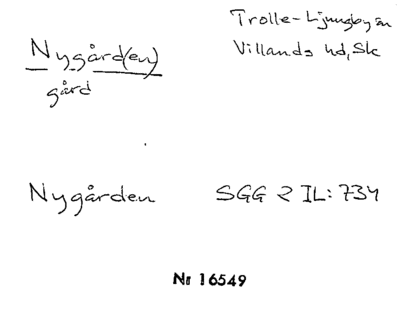 Nygård(en)
gård
Trolle-Ljungby sn
Villands hd, Sk
Nygården
SGG 2 IL: 734
Nr 16549